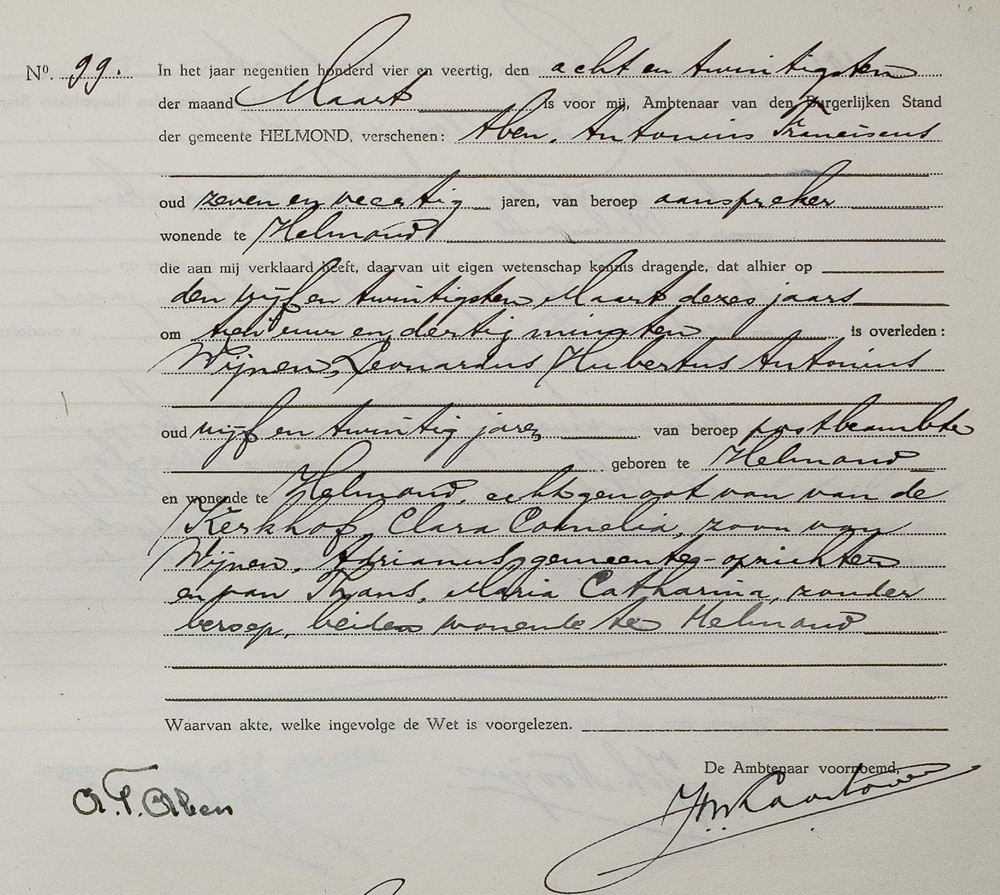 Nº. 99. In het jaar negentien honderd vier en veertig, den acht en twintigsten
der maand Maart is voor mij, Ambtenaar van den Burgerlijken Stand
der gemeente HELMOND, verschenen: Aben, Antonius Franciscus
oud zeven en veertig jaren, van beroep aanspreker
wonende te Helmond
die aan mij verklaard heeft, daarvan uit eigen wetenschap kennis dragende, dat alhier op
den vijf en twintigsten Maart dezes jaars
om tien uur en dertig minuten is overleden:
Wijnen, Leonardus Hubertus Antonius
oud vijf en twintig jaren van beroep postbeambte
geboren te Helmond
en wonende te Helmond, echtgenoot van van de
Kerkhof, Clara Cornelia, zoon van
Wijnen, Adrianus, gemeente-opzichter
en van Thans, Maria Catharina, zonder
beroep, beiden wonende te Helmond
Waarvan akte, welke ingevolge de Wet is voorgelezen.
De Ambtenaar voornoemd,
A.F. Aben